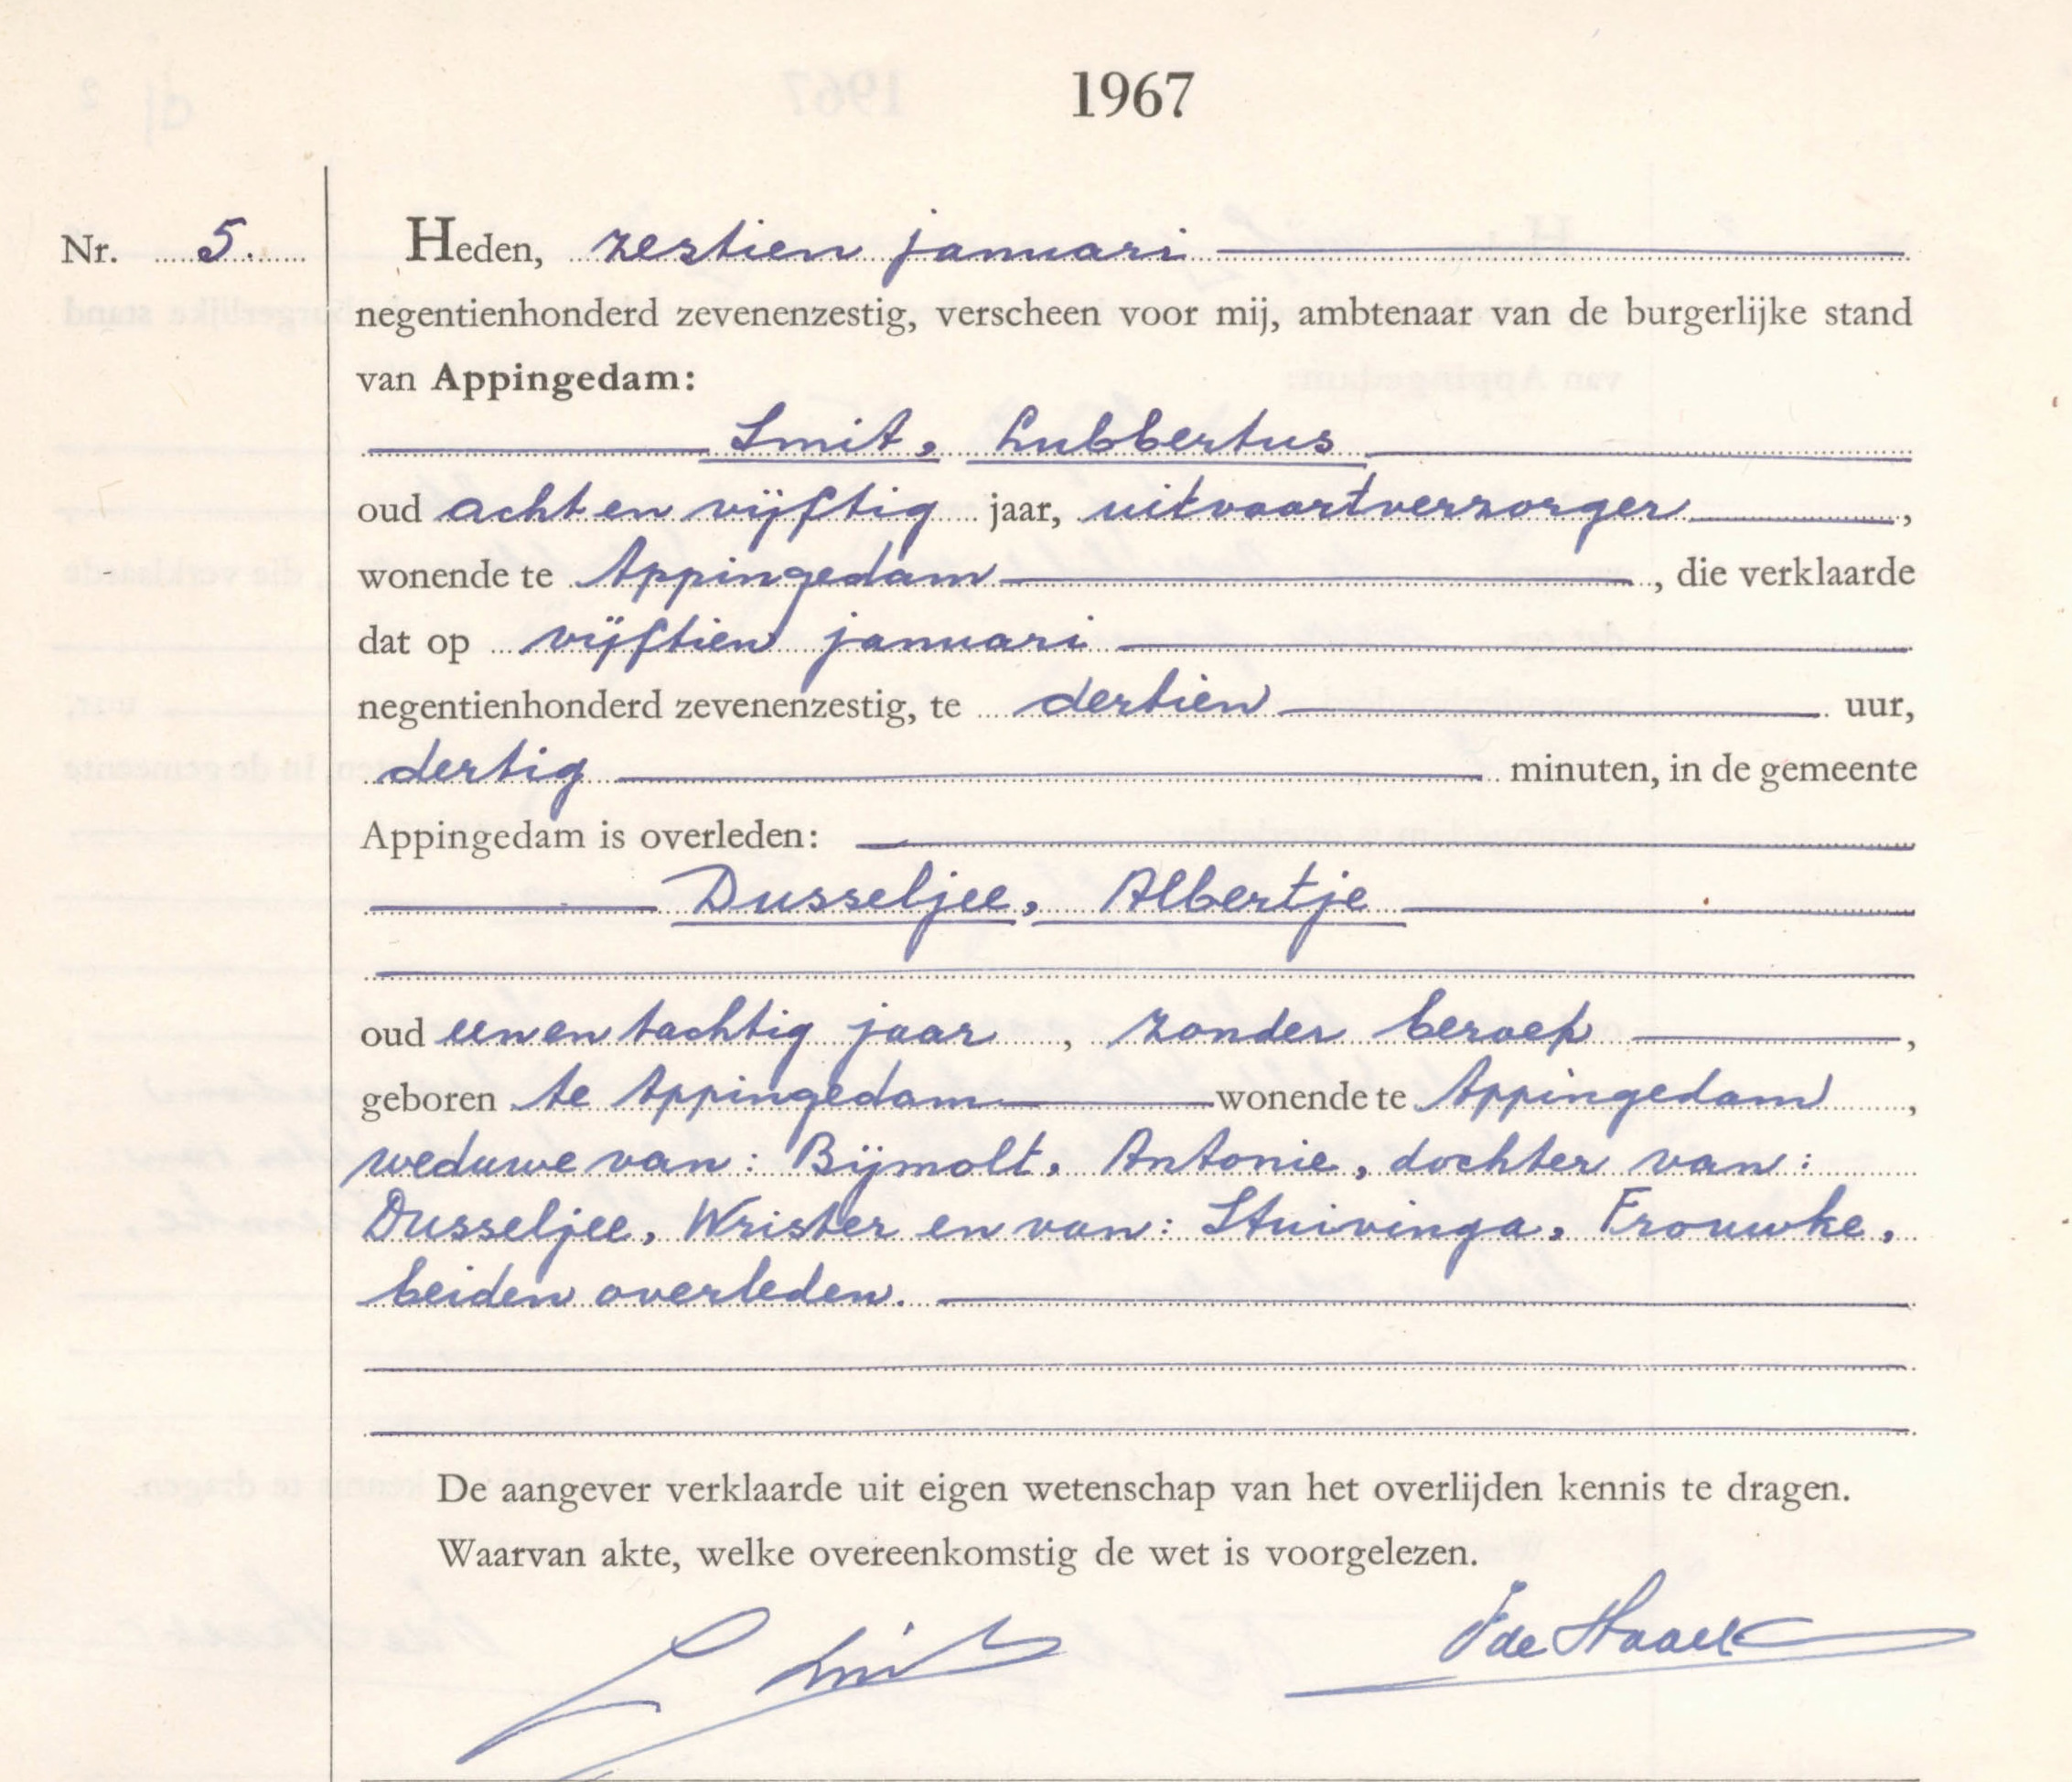 1967
Nr. 5.
Heden, zestien januari
negentienhonderd zevenenzestig, verscheen voor mij, ambtenaar van de burgerlijke stand
van Appingedam:
Smit, Lubbertus
oud acht en vijftig jaar, uitvaartverzorger,
wonende te Appingedam, die verklaarde
dat op vijftien januari
negentienhonderd zevenenzestig, te dertien uur,
dertig minuten, in de gemeente
Appingedam is overleden:
Dusseljee, Albertje
oud eenen tachtig jaar, zonder beroep,
geboren te Appingedam wonende te Appingedam,
weduwe van: Bijmolt, Antonie, dochter van:
Dusseljee, Wrister en van: Stuivinga, Frouwke,
beiden overleden.
De aangever verklaarde uit eigen wetenschap van het overlijden kennis te dragen.
Waarvan akte, welke overeenkomstig de wet is voorgelezen.
L Smit
de Haack